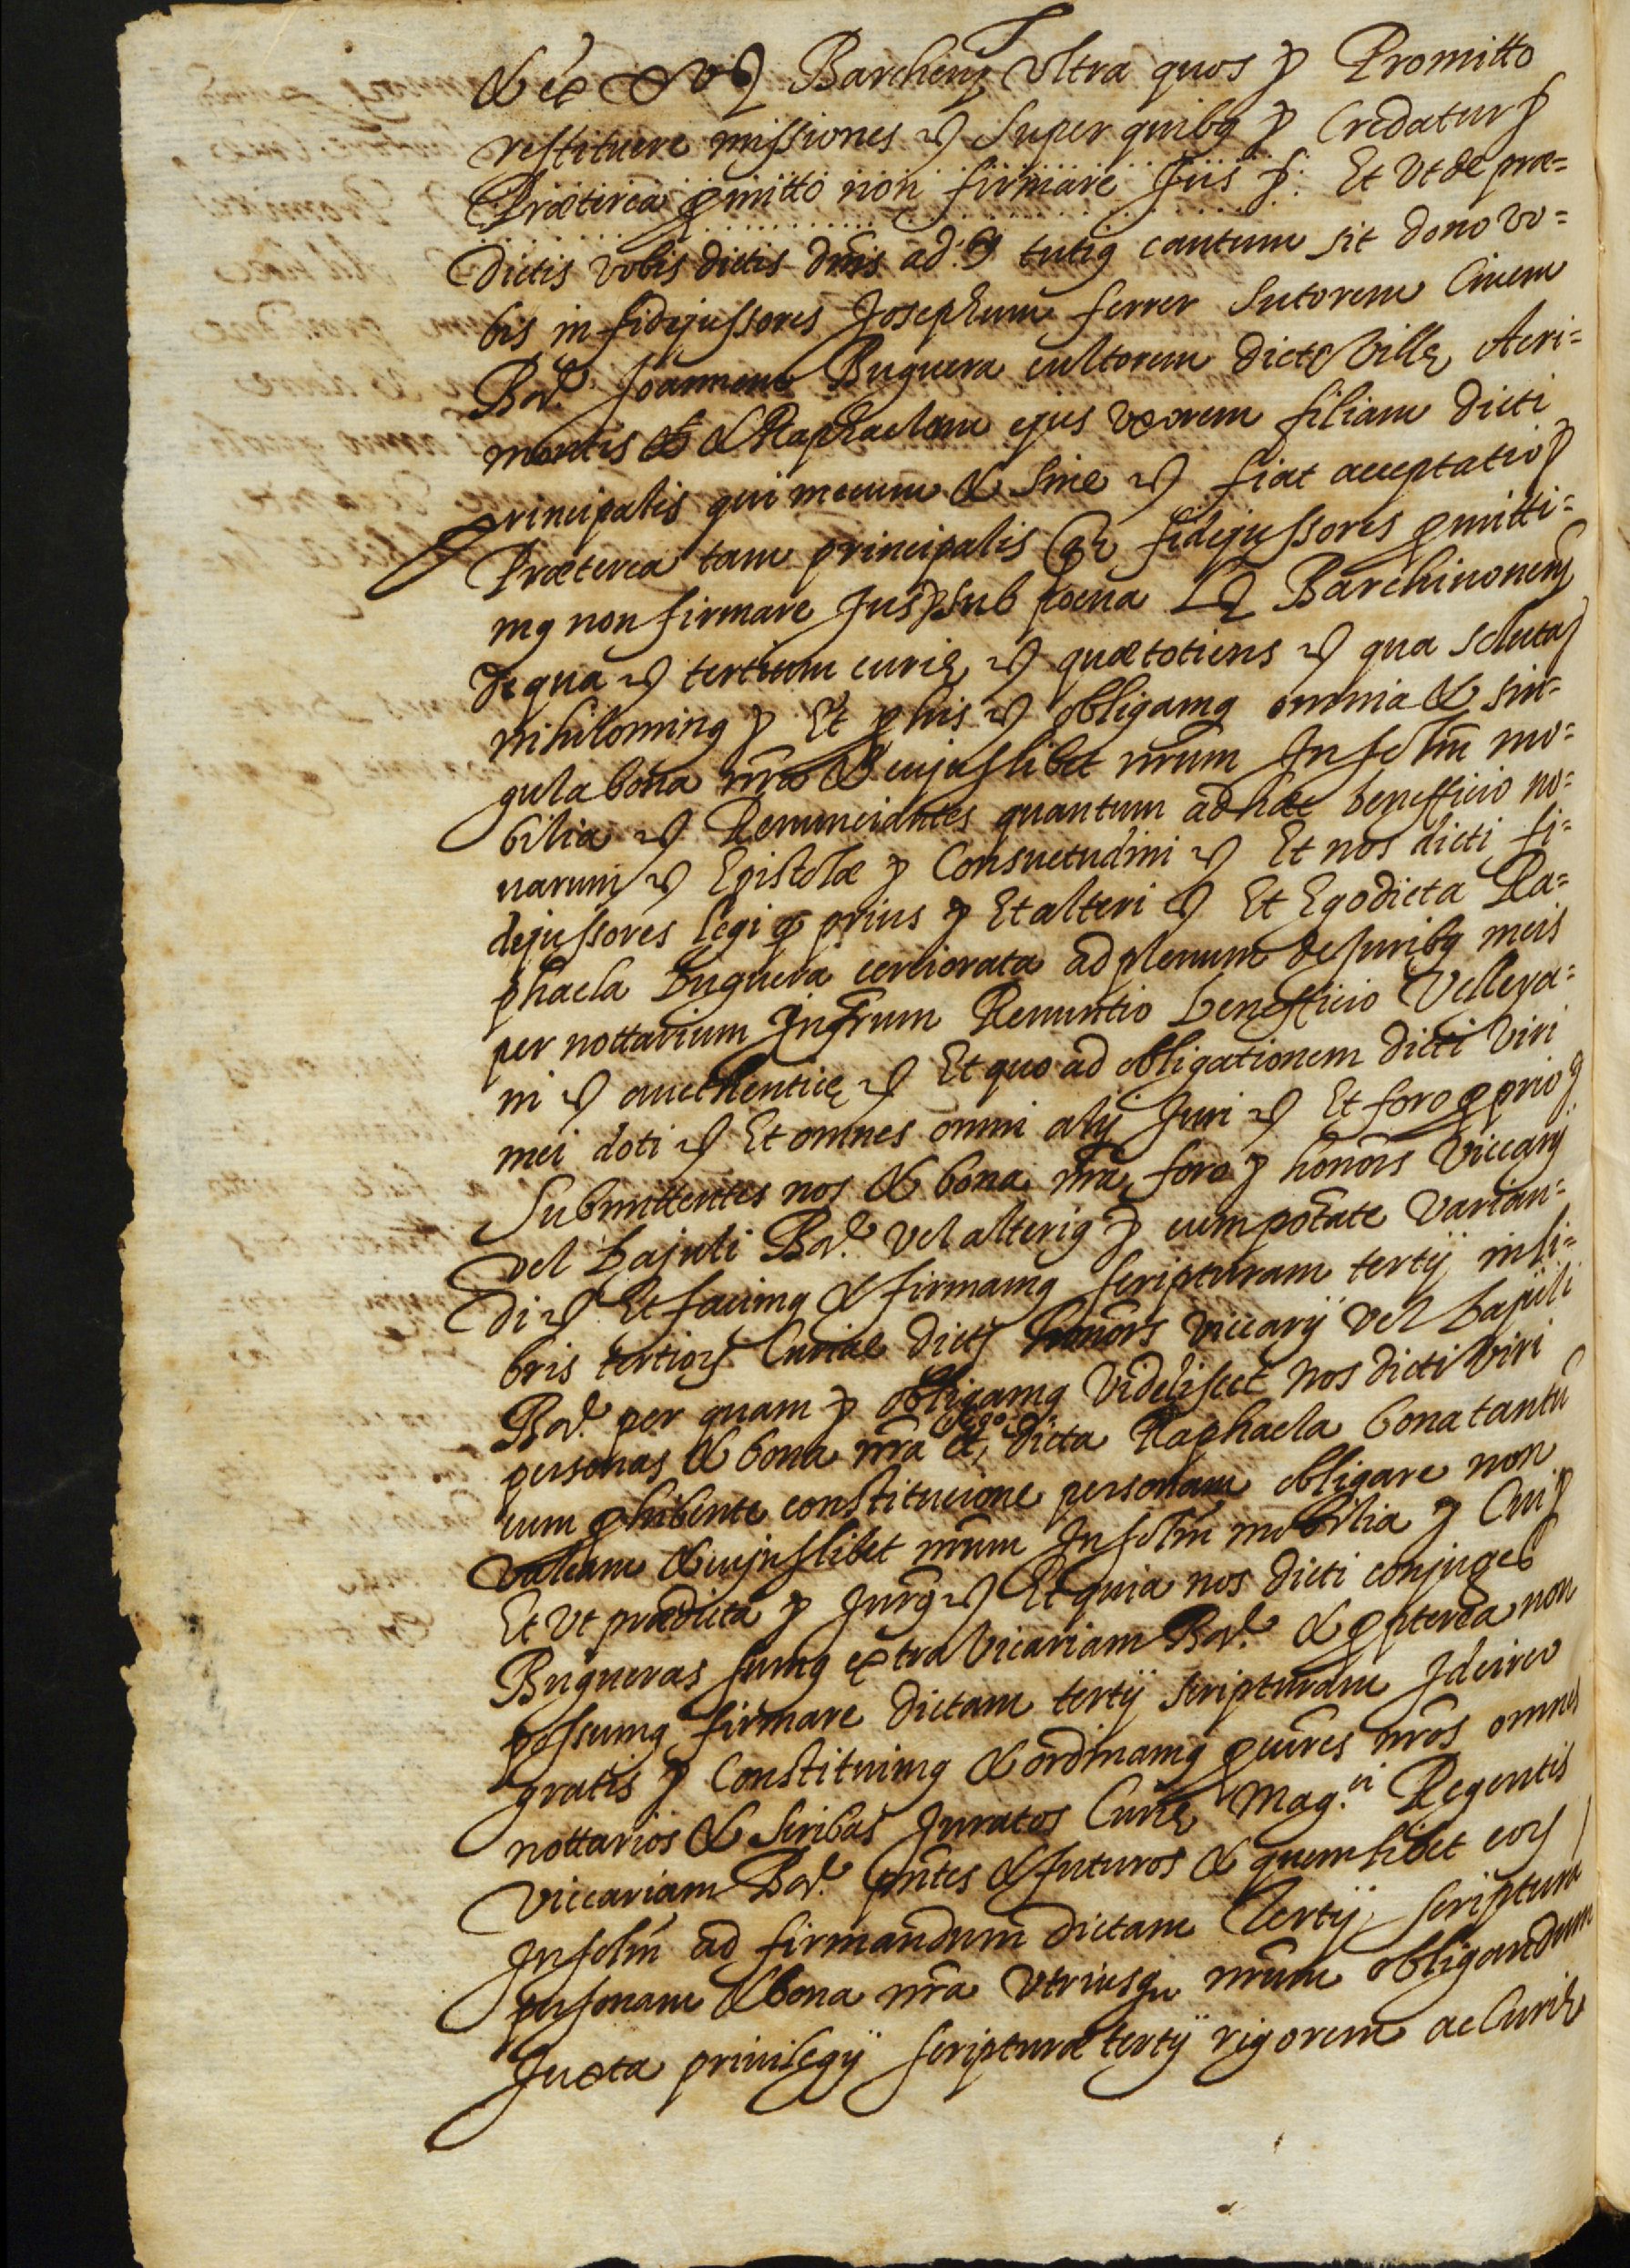 & ex Barchenz Ultra quos &c Promitto
restituere missiones &c Super quibus &c Credatur &c
Præterea pmitto non firmare Jus &c Et Ut de præ=
dictis vobis dictis dnis ad tutius cautum sit dono vo=
bis in fidejussores Josephum ferrer Sutorem Civem
Bar.e Joannem Buguera cultorem dictę Villę Acri=
montis & Raphaelam ejus uxorem filiam dicti
principalis qui mecum & Sine &c fiat acceptatio &c
Præterea tam principalis qm fidejussores pmitti=
mus non firmare Jus &c Sub poena Barchinonenz
de qua &c tertium curię &c quæ totiens &c qua soluta &c
nihilominus &c Et p his &c obligamus omnia & sin=
gula bona nra & cujuslibet nrum In solm mo=
bilia &c Renunciantes quantum ad hæc benefficio no=
varum &c Epistolæ &c Consuetudini &c Et nos dicti fi=
dejussores legi q prius &c Et alteri &c Et Ego dicta Ra=
phaela Buguera cerciorata ad plenum de Juribus meis
per nottarium Infrum Renuntio Benefficio Velleya=
ni &c aucthenticę &c Et quo ad obligationem dicti Viri
mei doti &c Et omnes omni alij Juri &c Et foro pprio &c
Submittentes nos & bona nra foro &c honors Viccarij
vel Bajuli Bar.e vel alterius &c cum potate Varian=
di &c Et facimus & firmamus scripturam tertij in li=
bris tertiorz Curiæ dictz honors Viccarij vel Bajuli
Bar.e per quam &c obligamus Videliscet nos dicti Viri
personas & bona nra et ego dicta Raphaela bona tantu
cum phibente constitucione personam obligare non
valeam & cujuslibet nrum In solm mobilia &c Cui &c
Et Ut prædicta &c Juro &c Et quia nos dicti conjuges
Bugueras sumus extra Vicariam Bar.e & ppterea non
possumus firmare dictam tertij scripturam Idcirco
gratis &c Constituimus & ordinamus pcures nros omnes
nottarios & Scribas Juratos Curię Mag.ci Regentis
Viccariam Bar.e pntes & futuros & quemlibet eorz
In solm ad firmandum dictam Tertij scriptura
personam & bona nra Utriusqu nrum obligandum
Juxta privilegij scripturæ tertij rigorem ac Curię